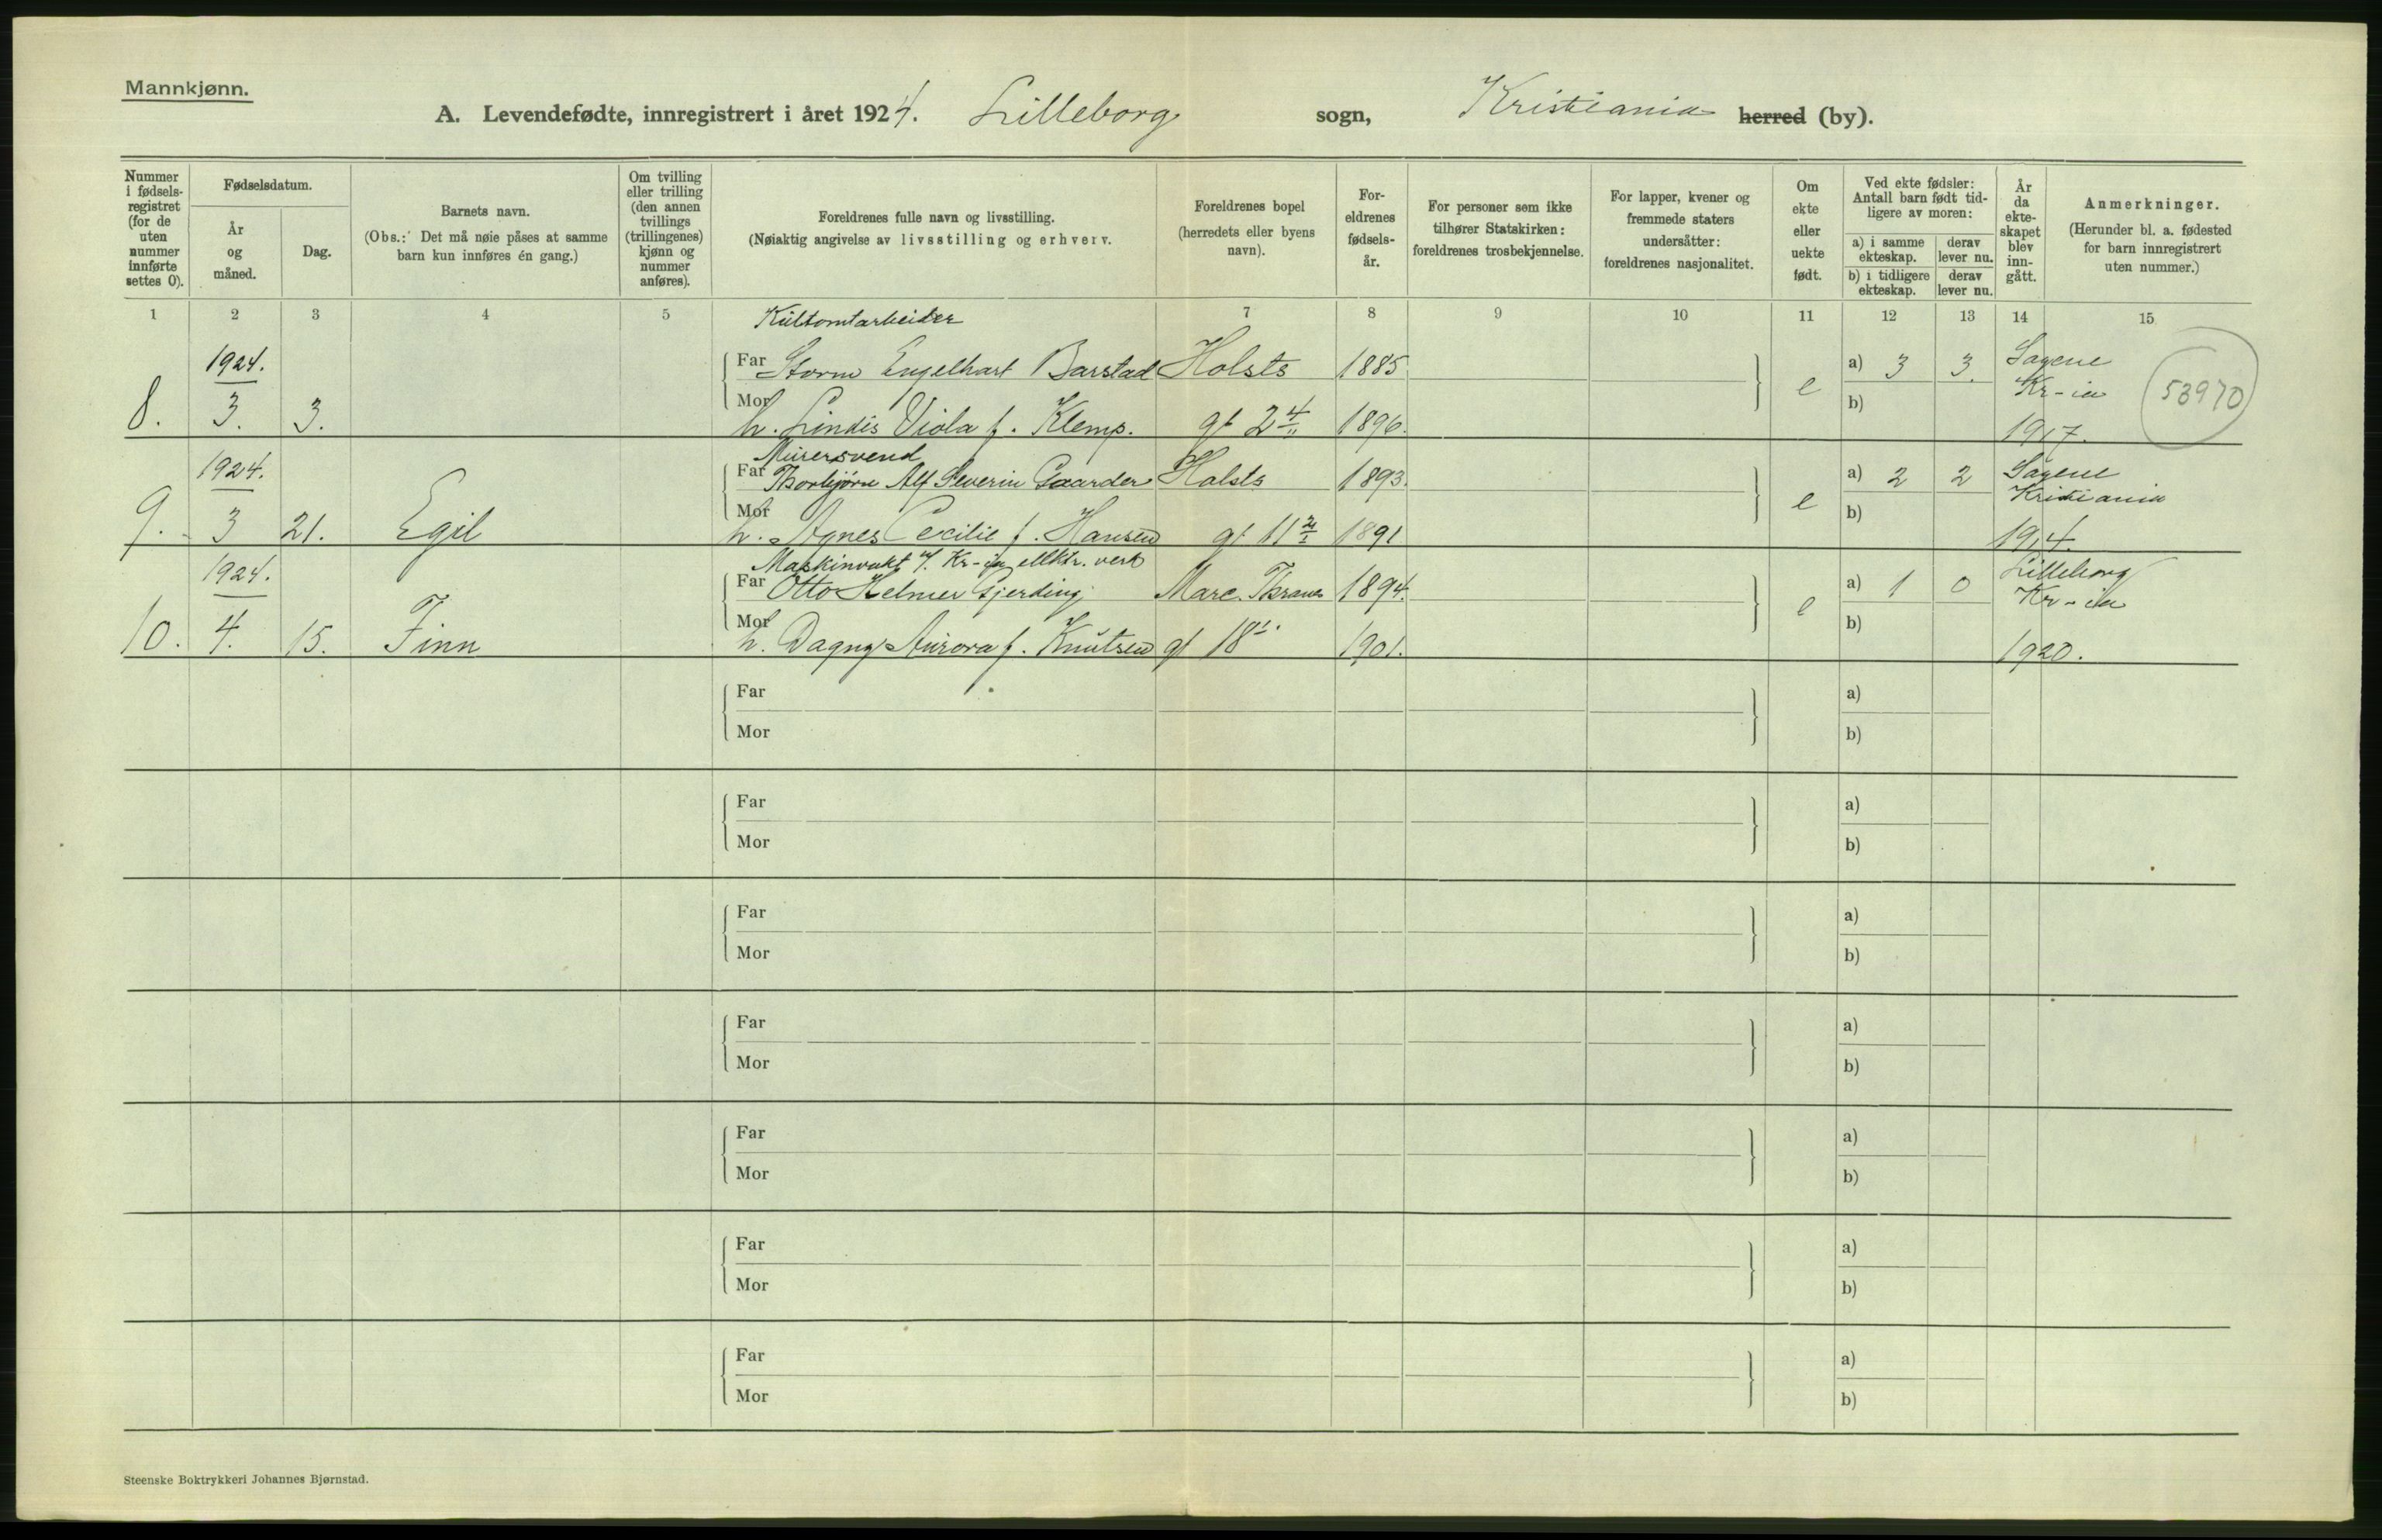 Mannkjønn.
A. Levendefødte, innregistrert i året 1924. Lilleborg sogn, Kristiania herred (by).
Nummer i fødselsregistret (for de uten nummer innførte settes 0).
Fødselsdatum.
År og måned.
Dag.
Barnets navn.
(Obs.: Det må nøie påses at samme barn kun innføres én gang.)
Om tvilling eller trilling (den annen tvillings (trillingenes) kjønn og nummer anføres).
Foreldrenes fulle navn og livsstilling.
(Nøiaktig angivelse av livsstilling og erhverv.
Foreldrenes bopel (herredets eller byens navn).
Foreldrenes fødselsår.
For personer som ikke tilhører Statskirken: foreldrenes trosbekjennelse.
For lapper, kvener og fremmede staters undersåtter: foreldrenes nasjonalitet.
Om ekte eller uekte født.
Ved ekte fødsler: Antall barn født tidligere av moren:
a) i samme ekteskap. derav lever nu.
b) i tidligere ekteskap. derav lever nu.
År da ekteskapet blev inngått.
Anmerkninger.
(Herunder bl. a. fødested for barn innregistrert uten nummer.)
1 2 3 4 5 7 8 9 10 11 12 13 14 15
Kultomtarbeider
1924. Far Storm Engelhart Barstad Holsts 1885. a) 3 3. Sagene
Kr-ia 53970
8. 3. 3. Mor h. Lindis Viola f. Klemp. gt 2 4/II 1896. e b) 1917.
Murersvend
1924. Far Thorbjørn Alf Severin Gaarder Holsts 1893. a) 2 2 Sagene
Kristiania
9. 3 21. Egil Mor h. Agnes Cecilie f. Hansen gt 11 1891 e b) 1914.
Maskinvakt v/. Kr-ia elktr. verk
1924. Far Otto Helmer Gjerding Marc. Thranes 1894. a) 1 0 Lilleborg
Kr-ia
10. 4. 15. Finn Mor h. Dagny Aurora f. Knutsen gt 18 1901. e b) 1920.
Far a)
Mor b)
Far a)
Mor b)
Far a)
Mor b)
Far a)
Mor b)
Far a)
Mor b)
Far a)
Mor b)
Far a)
Mor b)
Steenske Boktrykkeri Johannes Bjørnstad.